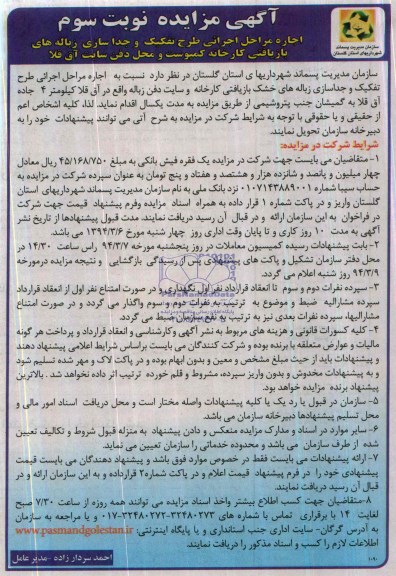 آگهی مزایده نوبت سوم
اجاره مراحل اجرایی طرح تفکیک و جداسازی زباله های
بازیافتی کارخانه کمپوست و محل دفن سایت آق قلا
سازمان مدیریت پسماند
شهرداریهای استان گلستان
سازمان مدیریت پسماند شهرداریها ی استان گلستان در نظر دارد نسبت به اجاره مراحل اجرائی طرح
تفکیک و جداسازی زباله های خشک بازیافتی کارخانه و سایت دفن زباله واقع در آق قلا کیلومتر ۴ جاده
آق قلا به گمیشان جنب پتروشیمی از طریق مزایده به مدت یکسال اقدام نماید. لذا، کلیه اشخاص اعم
از حقیقی و یا حقوقی با توجه به شرایط شرکت در مزایده به شرح آتی می توانند پیشنهادات خود را به
دبیرخانه سازمان تحویل نمایند.
شرایط شرکت در مزایده:
۱- متقاضیان می بایست جهت شرکت در مزایده یک فقره فیش بانکی به مبلغ ۴۵/۱۶۸/۷۵۰ ریال معادل
چهار میلیون و پانصد و شانزده هزار و هشتصد و هفتاد و پنج تومان به عنوان سپرده شرکت در مزایده به
حساب سیبا شماره ۰۱۰۷۱۴۳۸۸۹۰۰۱ نزد بانک ملی به نام سازمان مدیریت پسماند شهرداریهای استان
گلستان واریز و در پاکت شماره ۱ قرار داده به همراه اسناد مزایده وفرم پیشنهاد قیمت جهت شرکت
در فراخوان به این سازمان ارائه و در قبال آن رسید دریافت نمایند. مدت قبول پیشنهادها از تاریخ نشر
آگهی به مدت ۱۰ روز کاری و تا پایان وقت اداری روز چهار شنبه مورخ ۱۳۹۴/۳/۶ می باشد.
۲- بابت پیشنهادات رسیده کمیسیون معاملات در روز پنجشنبه مورخه ۹۴/۳/۷ راس ساعت ۱۴/۳۰ در
محل دفتر سازمان تشکیل و پاکت های پیشنهادی پس از رسیدگی بازگشایی و نتیجه مزایده درمورخه
۹۴/۳/۹ روز شنبه اعلام می گردد.
۳- سپرده نفرات دوم و سوم تا انعقاد قرارداد نفر اول نگهداری و در صورت امتناع نفر اول از انعقاد قرارداد
سپرده مشارالیه ضبط و موضوع به ترتیب به نفرات دوم و سوم واگذار می گردد و در صورت امتناع
مشارالیها، سپرده نفرات بعدی نیز به ترتیب به نفع سازمان ضبط می گردد.
۴- کلیه کسورات قانونی و هزینه های مربوط به نشر آگهی وکارشناسی و انعقاد قرارداد و پرداخت هر گونه
مالیات و عوارض متعلقه با برنده بوده و شرکت کنندگان می بایست براساس شرایط اعلامی پیشنهاد دهند
و پیشنهادات باید از حیث مبلغ مشخص و معین و بدون ابهام بوده و در پاکت لاک و مهر شده تسلیم شود
و به پیشنهادات مخدوش و بدون واریز سپرده، مشروط و قلم خورده ترتیب اثر داده نخواهد شد . بالاترین
پیشنهاد برنده مزایده خواهد بود.
۵- سازمان در قبول یا رد یک یا کلیه پیشنهادات واصله مختار است و محل دریافت اسناد امور مالی و
محل تسلیم پیشنهادها دبیرخانه سازمان می باشد.
۶- سایر موارد در اسناد و مدارک مزایده منعکس و دادن پیشنهاد به منزله قبول شروط و تکالیف تعیین
شده از طرف سازمان می باشد و محدوده خدماتی را سازمان تعیین می نماید.
۷- ارائه پیشنهادات می بایست فقط در خصوص موارد فوق باشد و پیشنهاد دهندگان می بایست قیمت
پیشنهادی خود را در فرم پیشنهاد قیمت اعلام و در پاکت شماره۲ قرارداده و به این سازمان ارائه و در
قبال آن رسید دریافت نمایند.
۸-متقاضیان جهت کسب اطلاع بیشتر واخذ اسناد مزایده می توانند همه روزه از ساعت ۷/۳۰ صبح
لغایت ۱۴ با برقراری تماسی با شماره های ۳۲۴۸۰۲۷۳-۳۲۴۸۰۲۷۲-۰۱۷ و یا مراجعه به سازمان
به آدرس گرگان- سایت اداری جنب استانداری و یا پایگاه اینترنتی: www.pasmandgolestan.ir
اطلاعات لازم را کسب و اسناد مذکور را دریافت نمایند.
احمد سردار زاده -مدیر عامل